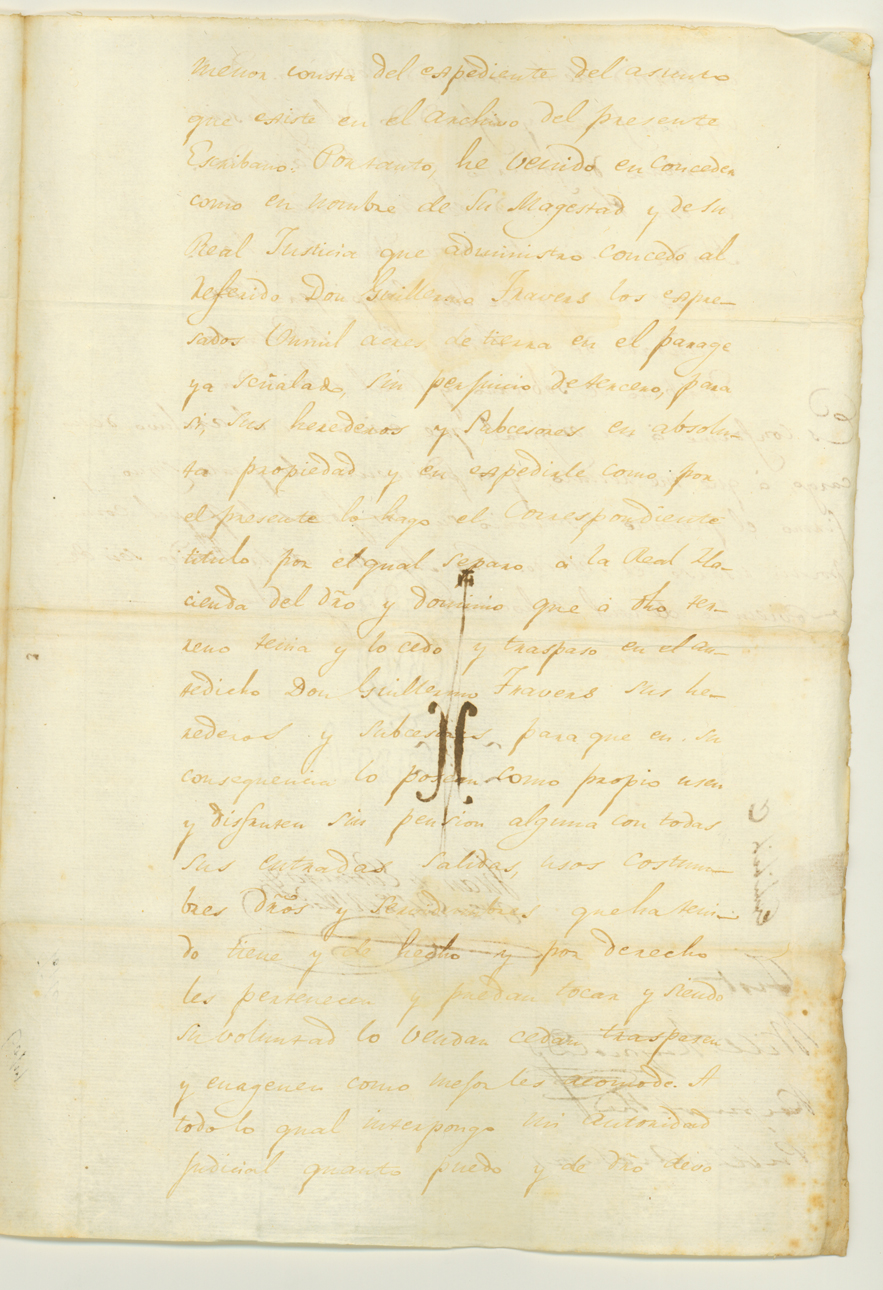 menor consta del espediente del asunto
que existe en el archivo del presente
Escribano. Por tanto, he venido en conceder
como en nombre de Su Magestad y de su
Real Justicia que administro concedo al
referido Don Guillermo Travers los espre-
sados mil acres de tierra en el parage
ya señalado, sin perjuicio de tercero, para
si, sus herederos y Subcesores en absolu-
ta propiedad y en espedirle como por
el presente lo hago el Correspondiente
titulo por el qual separo a la Real Ha-
cienda del dro y dominio que á dho ter-
reno tenia y lo cedo y traspaso en el an-
tedicho Don Guillermo Travers sus he-
rederos y subcesores para que en su
consequencia lo posean como propio usen
y disfruten sin pension alguna con todas
sus entradas salidas, usos costum-
bres dros y servidumbres que ha teni-
do tiene y de hecho y por derecho
les pertenecen y puedan tocar y siendo
su voluntad lo vendan cedan traspasen
y enagenen como mejor les acomode. A
todo lo qual interpongo mi autoridad
judicial quanto puedo y de dro devo